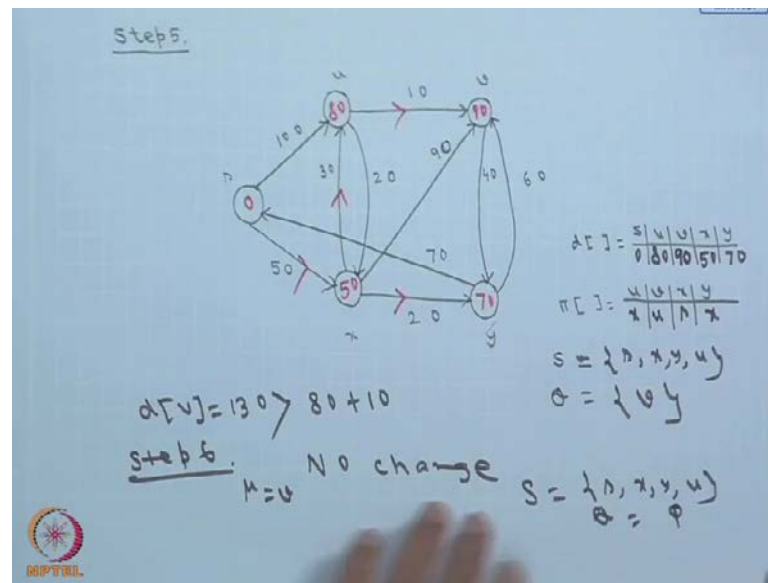 Step5.
u
v
10
80
90
100
90
40
60
30
20
s
0
70
50
50
70
20
x
y
d[ ] = s | u | v | x | y
0 | 80 | 90 | 50 | 70
π[ ] = u | v | x | y
x | u | s | x
S = {s, x, y, u}
Q = {v}
d[v] = 130 > 80 + 10
Step 6.
No change
u = v
S = {s, x, y, u}
Q = φ
NPTEL